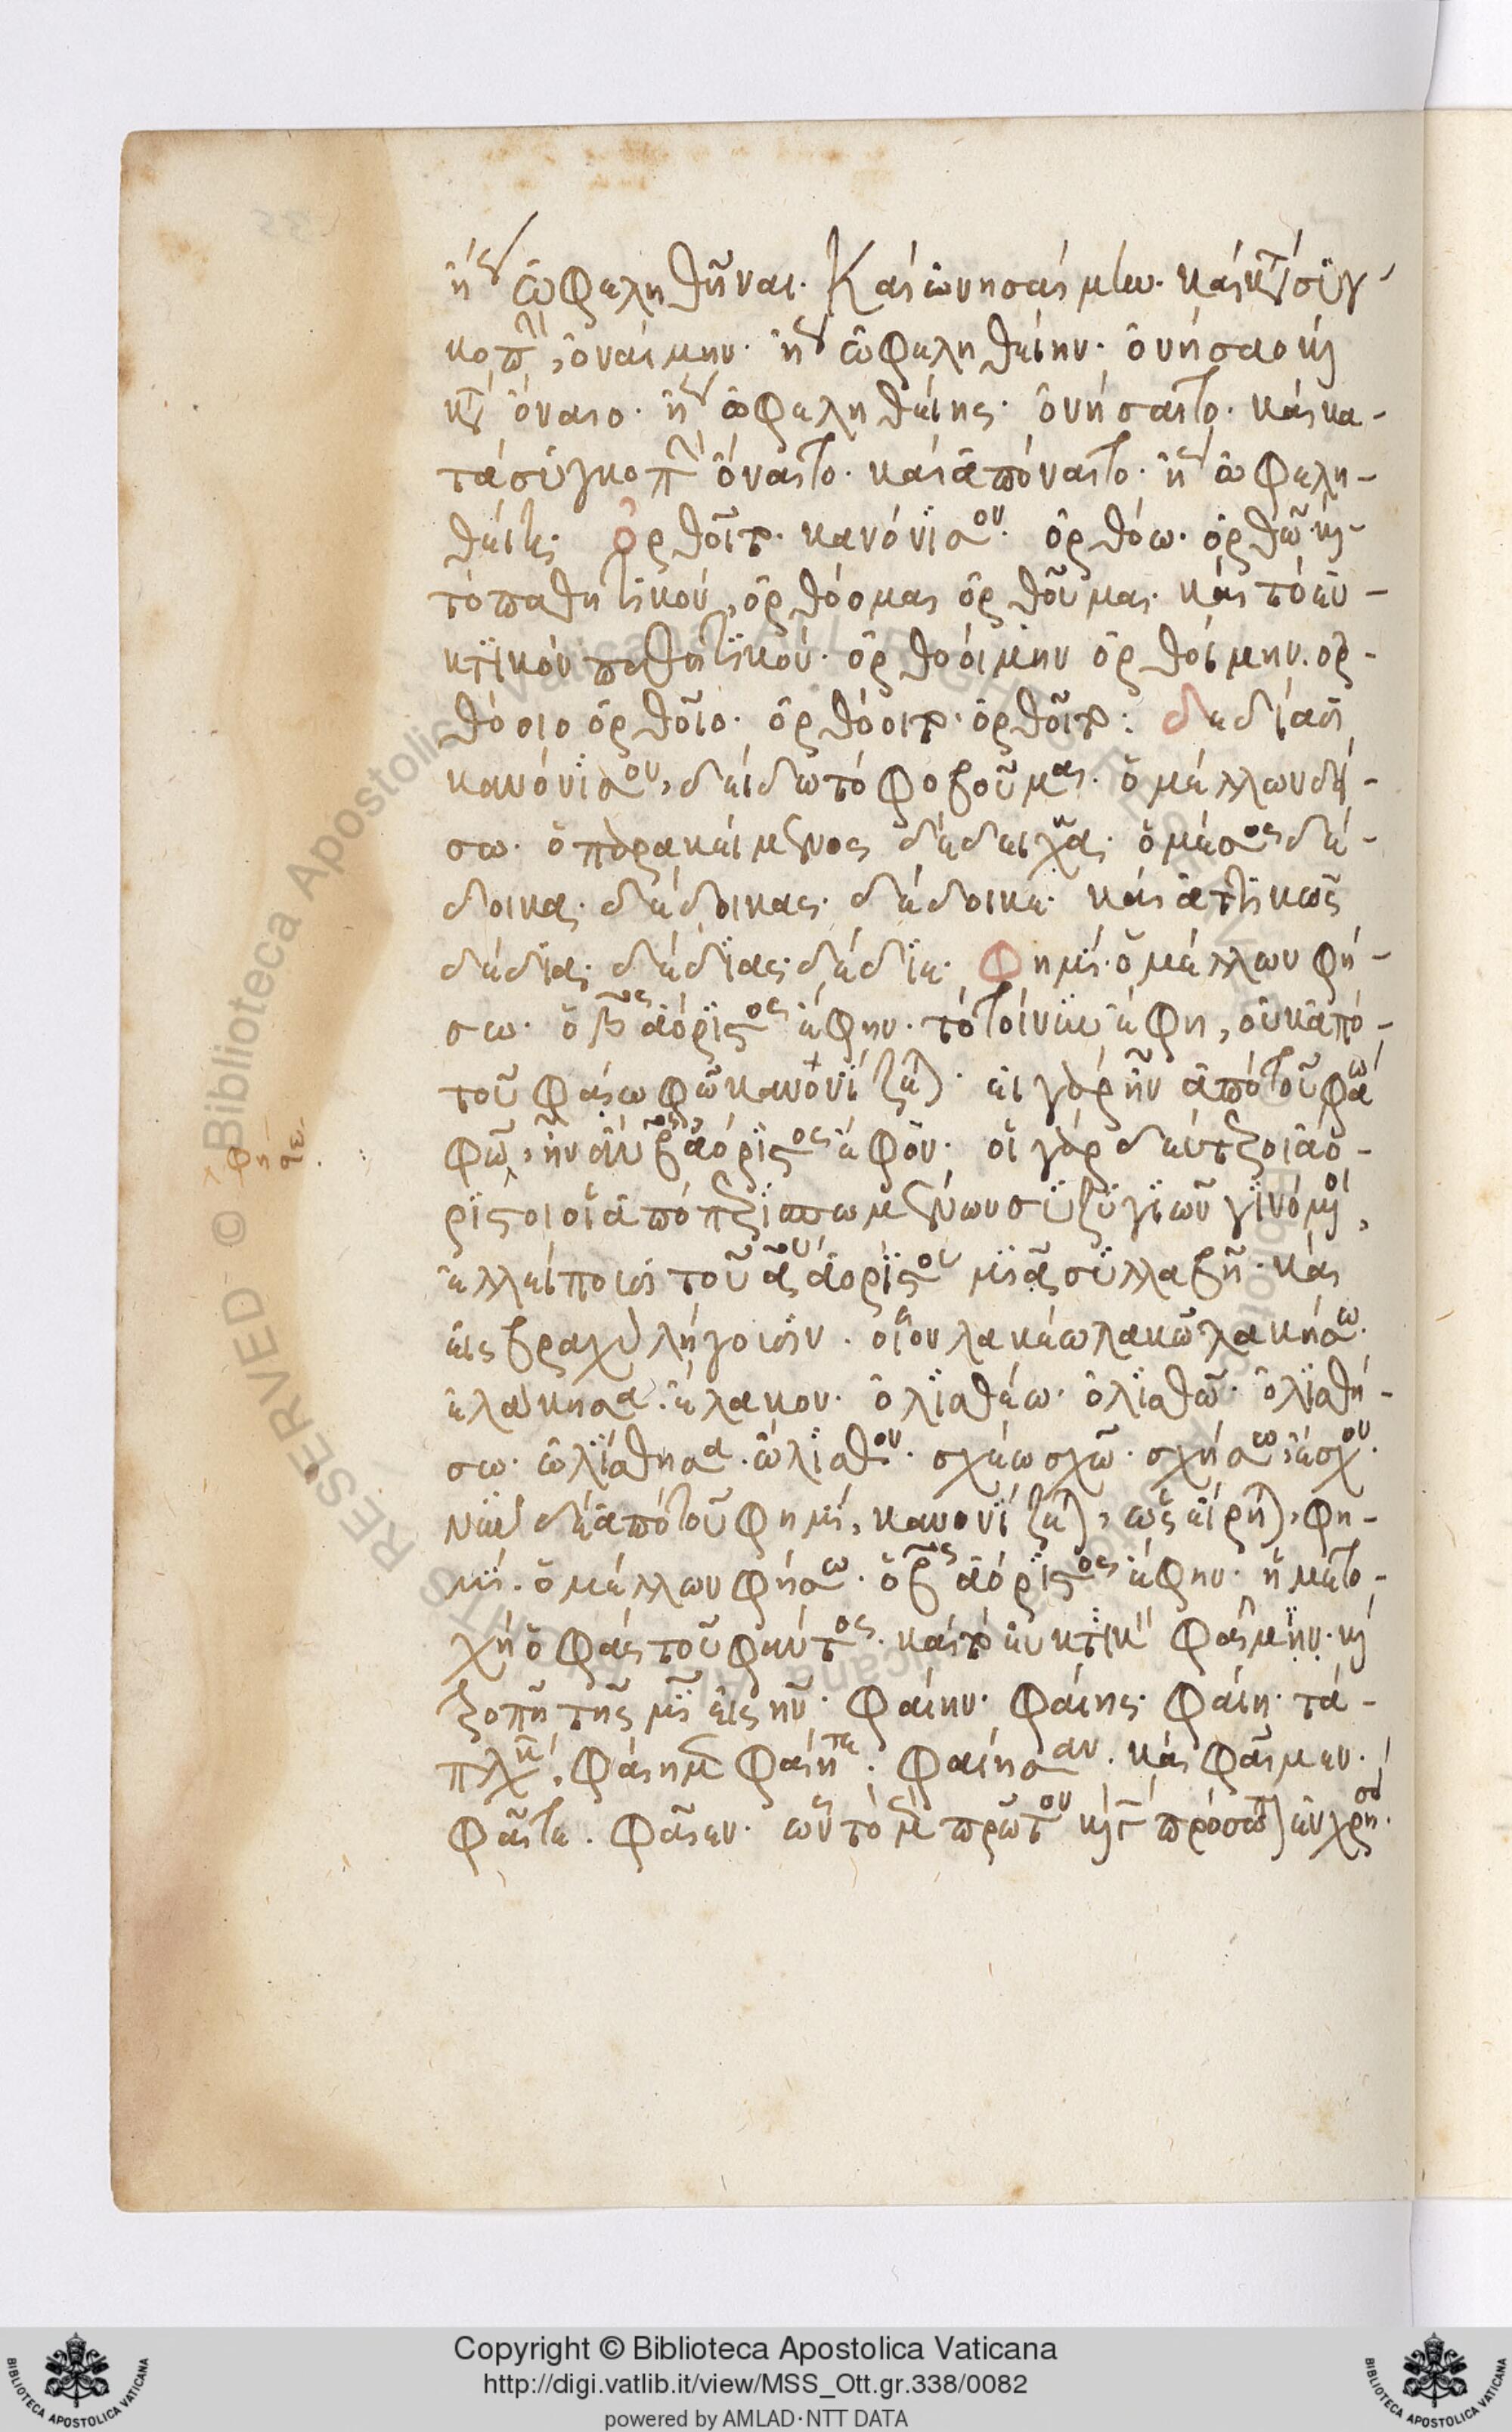 ἤγουν ὠφεληθῆναι. Καὶ ὠνησαίμην. καὶ κατὰ συγ-
κοπὴν, ὀναίμην. ἤγουν ὠφεληθείην. ὀνήσαιο καὶ
κατὰ ὄναιο. ἤγουν ὠφεληθείης. ὀνήσαιτο. καὶ κα-
τὰ συγκοπὴν ὄναιτο. καὶ ἀπόναιτο. ἤγουν ὠφελη-
θείη. ὀρθοῖτο. κανόνισον. ὀρθόω. ὀρθῶ καὶ
τὸ παθητικὸν, ὀρθόομαι ὀρθοῦμαι. καὶ τὸ εὐ-
κτικὸν παθητικὸν. ὀρθοοίμην ὀρθοίμην. ὀρ-
θόοιο ὀρθοῖο. ὀρθόοιτο. ὀρθοῖτο: δεδίασι
κανόνισον, δείδω τὸ φοβοῦμαι. ὁ μέλλων δεί-
σω. ὁ παρακείμενος δέδεικα. ὁ μέσος δέ-
δοικα. δέδοικας. δέδοικε. καὶ ἀττικῶς
δέδια. δέδιας. δέδιε. Φημί. ὁ μέλλων φή-
σω. ὁ βος ἀόριστος ἔφην. τὸ τοίνυν ἔφη, οὐκ ἀπὸ
τοῦ φάω φῶ κανονίζεται. εἰ γὰρ ἦν ἀπὸ τοῦ φάω
φῶ, ἦν ἂν ὁ βος ἀόριστος ἔφον. οἱ γὰρ δεύτεροι ἀό-
ριστοι οἱ ἀπὸ περισπωμένων συζυγιῶν γινόμενοι,
ἐλλείπουσι τοῦ αου ἀορίστου μιᾷ συλλαβῇ. καὶ
εἰς βραχὺ λήγουσιν. οἷον λακέω λακῶ λακήσω.
ἐλάκησα. ἔλακον. ὀλισθέω. ὀλισθῶ. ὀλισθή-
σω. ὠλίσθησα. ὤλισθον. σχέω σχῶ. σχήσω, ἔσχον.
νῦν δὲ ἀπὸ τοῦ φημί, κανονίζεται, ὡς εἴρηται, φη-
μί. ὁ μέλλων φήσω. ὁ βος ἀόριστος ἔφην. ἡ μετο-
χὴ ὁ φὰς τοῦ φάντος. καὶ τὸ εὐκτικὸν φαίμην. καὶ
τροπῇ τῆς μι εἰς ην. φαίην. φαίης. φαίη. τὰ
πληθυντικά, φαίημεν φαίητε. φαίησαν. καὶ φαῖμεν.
φαῖτε. φαῖεν. ὧν τὸ μὲν πρῶτον καὶ γ πρόσωπον ἐν χρήσει.